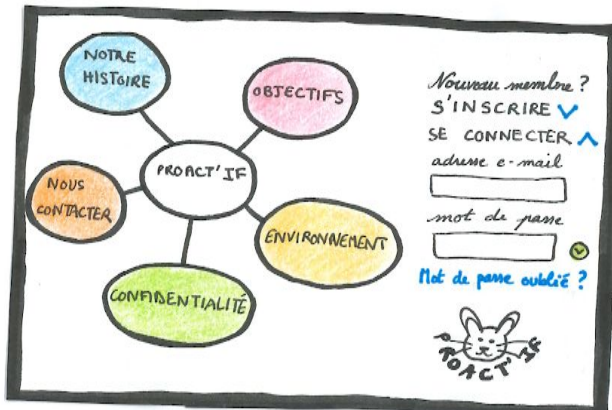 NOTRE
HISTOIRE
OBJECTIFS
PROACT'IF
NOUS
CONTACTER
ENVIRONNEMENT
CONFIDENTIALITÉ
Nouveau membre ?
S'INSCRIRE
SE CONNECTER
adresse e-mail
mot de passe
Mot de passe oublié ?
PROACT'IF